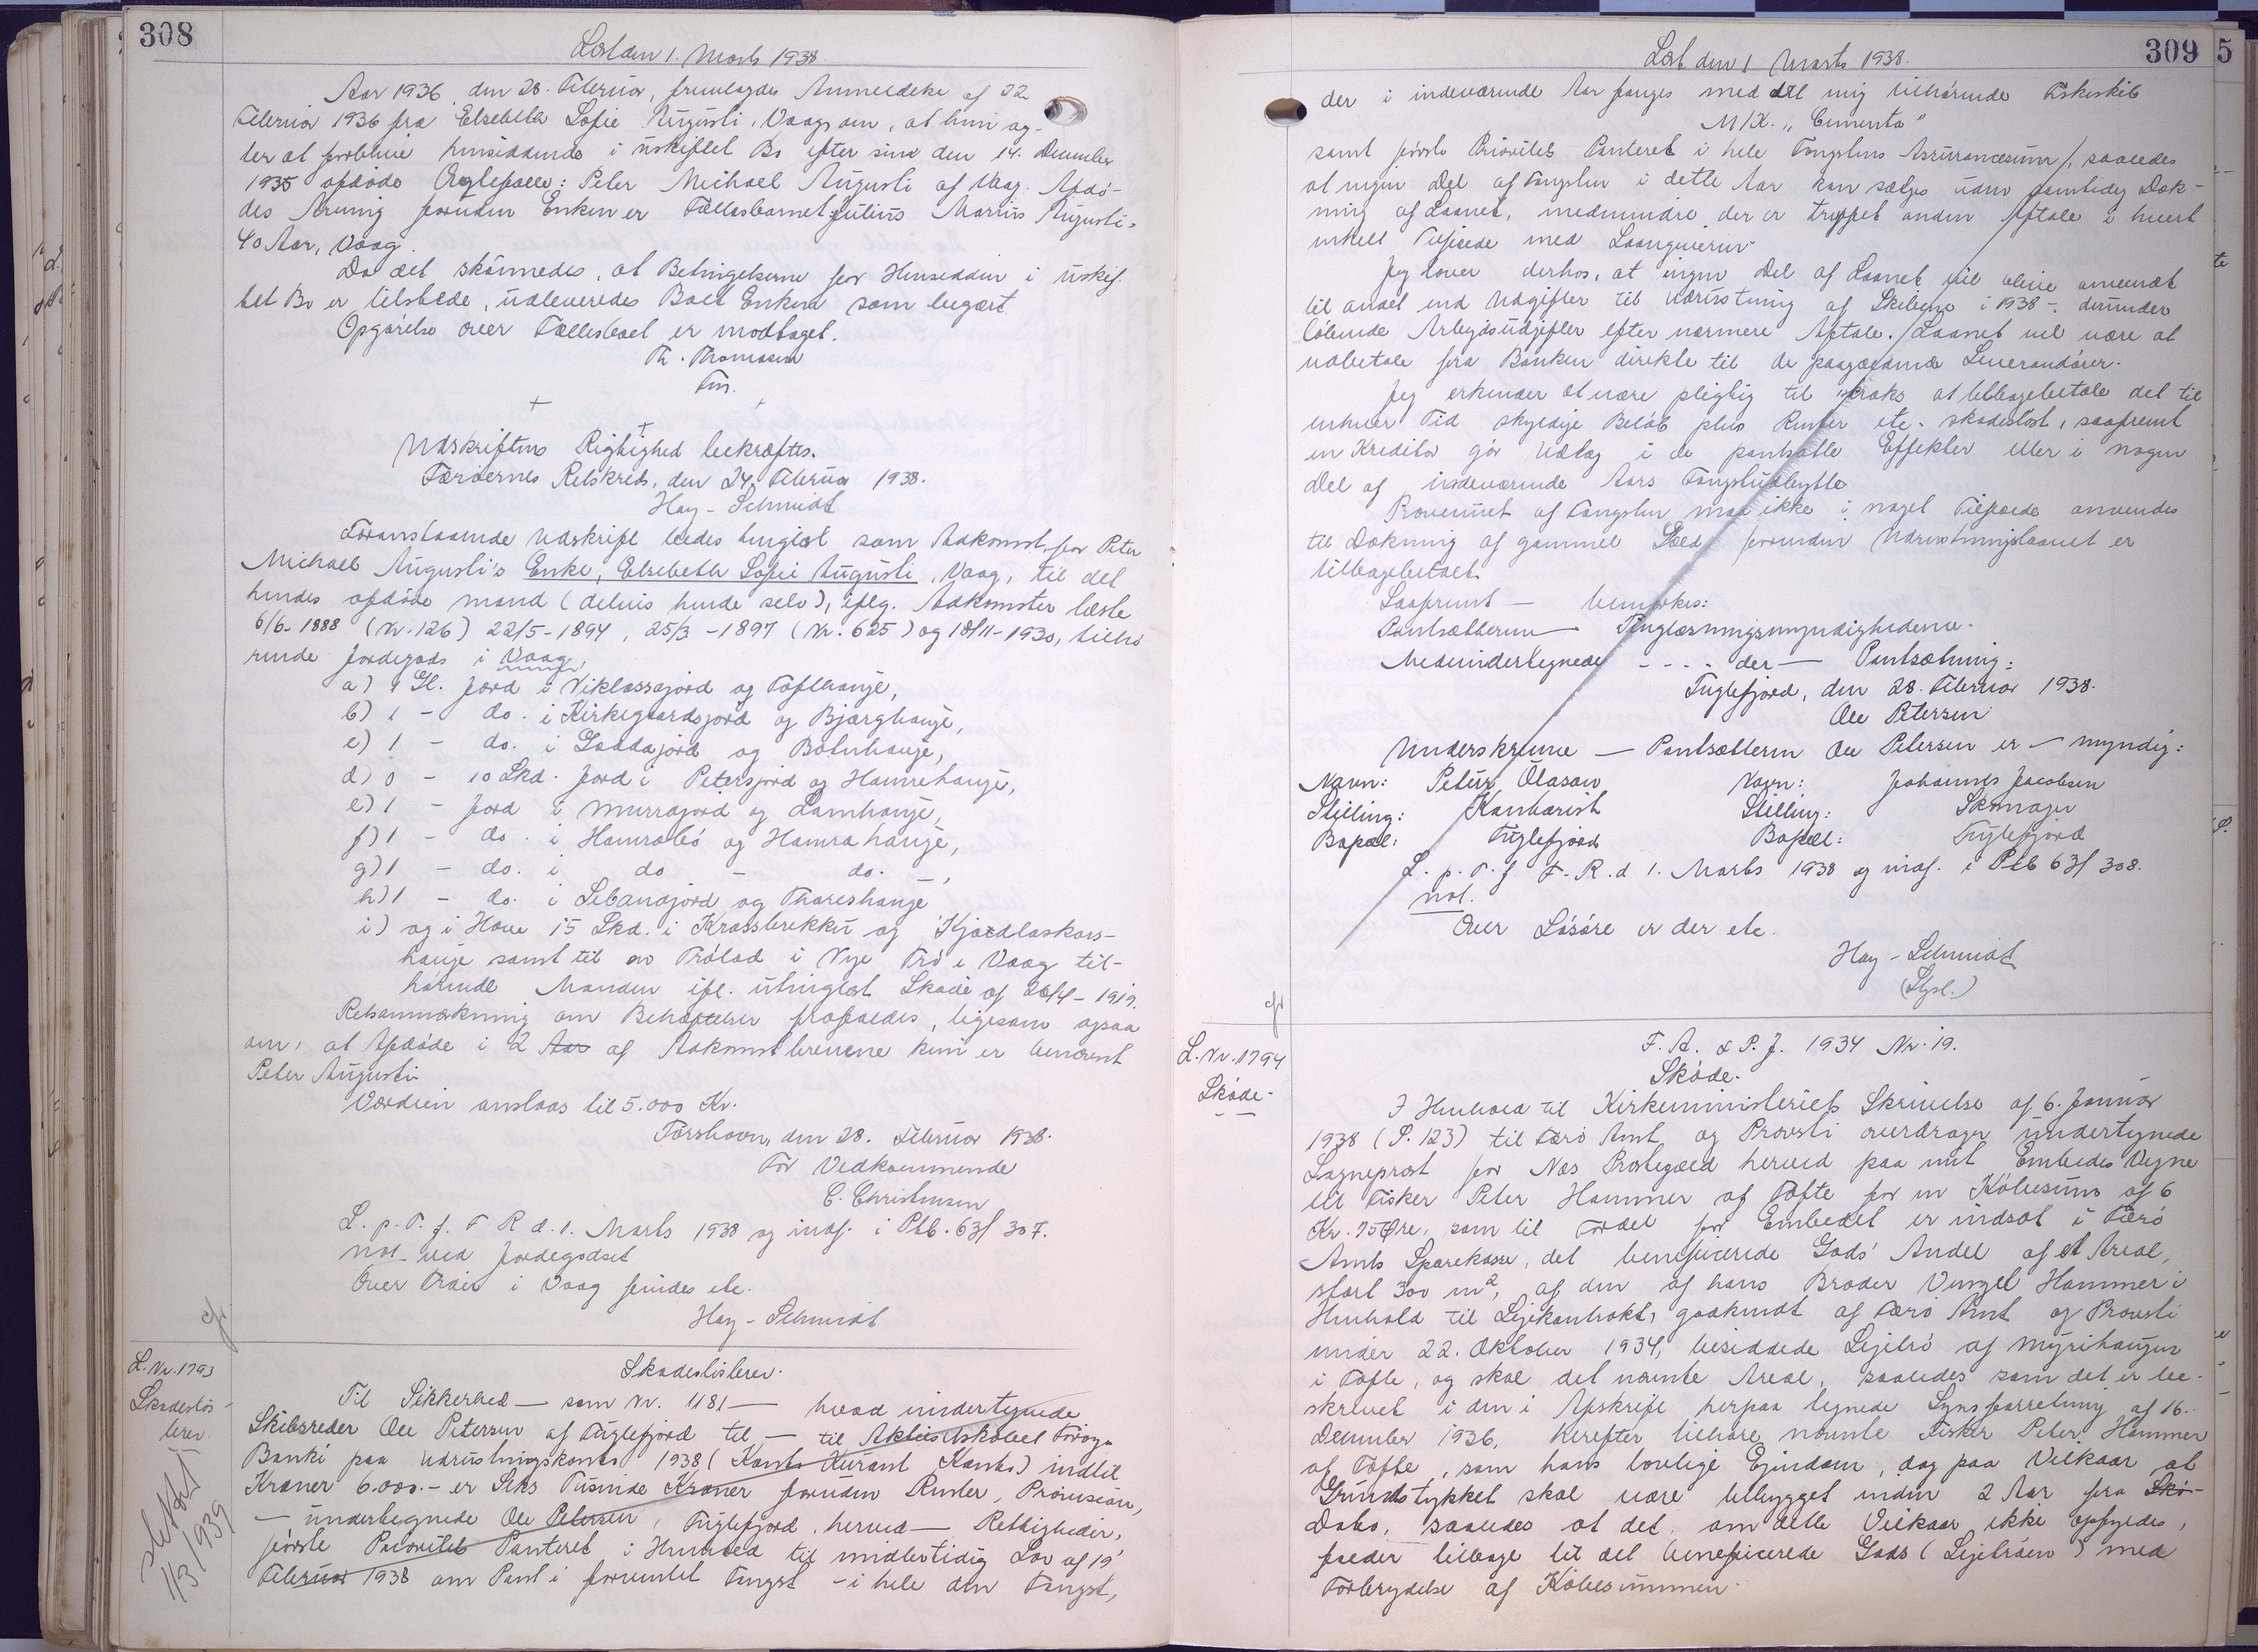 308
Læst den 1. Marts 1938.
Aar 1936, den 28. Februar, fremlagdes Anmeldelse af 22
Februar 1936 fra Elsebeth Sofie Augusti, Vaag om, at hun ag-
ter at forblive hensiddende i uskiftet Bo efter sin den 14. December
1935 afdøde Ægtefælle: Peter Michael Augusti af Vaag. Afdø-
des Arving foruden Enken er Fællesbarnet Julius Marius Augusti,
40 Aar, Vaag.
Da det skønnedes, at Betingelserne for Hensidden i uskif-
tet Bo er tilstede, udleveredes Boet Enken som begært
Opgørelse over Fællesboet er modtaget.
Th. Thomasen
Fm.
Udskriftens Rigtighed bekræftes.
Færøernes Retskreds, den 24. Februar 1938.
Hay-Schmidt
Foranstaaende Udskrift bedes tinglæst som Adkomst for Peter
Michael Augusti's Enke, Elsebeth Sofie Augusti, Vaag, til det
hendes afdøde mand (delvis hende selv), iflg. Adkomster læste
6/6-1888 (Nr. 126) 22/5-1894, 25/3-1897 (Nr. 625) og 18/11-1930, tilhø
rende Jordegods i Vaag,
a) 1 Gl. Jord i Viklassajord og Tofthauge,
b) 1 - do. i Kirkegaardsjord og Bjarghauge,
c) 1 - do. i Gaddajord og Botnhauge,
d) 0 - 10 Skd. Jord i Petersjord og Hamrehauge,
e) 1 - Jord i Murrajord og Lamhauge,
f) 1 - do. i Hamrabø og Hamrahauge,
g) 1 - do. i do - do.,
h) 1 - do. i Libanajord og Thoreshauge
i) og i Hove 15 Skd. i Krossbrekku og Kjoadlaskars-
hauge samt til en Trølod i Nye Trø i Vaag til-
hørende Manden ifl. utinglæst Skøde af 26/4-1919.
Retsanmærkning om Behæftelser frafaldes, ligesom ogsaa
om, at Afdøde i 2 Aar af Adkomstbrevene kun er benævnt
Peter Augusti
Værdien anslaas til 5.000 Kr.
Torshavn, den 28. Februar 1938.
For Vedkommende
C. Christensen
L. p. T. f. F R d. 1. Marts 1938 og indf. i Ptb. 63f 307.
not. ved Jordegodset
Over Trøer i Vaag findes etc.
Hay-Schmidt
L. Nr. 1793
Skadesløs-
brev.
slettet
1/3/1939
Skadesløsbrev.
Til Sikkerhed — som Nr. 1181 — hvad undertegnede
Skibsreder Ole Petersen af Fuglefjord til — til Aktieselskabet Føroya
Banki paa Udrustningskonto 1938 (Konto Kurant Konto) indtil
Kroner 6.000.- er Seks Tusinde Kroner foruden Renter, Provision,
— undertegnede Ole Petersen, Fuglefjord, herved — Rettigheder,
første Prioritets Panteret i Henhold til midlertidig Lov af 19
Februar 1938 om Pant i forventet Fangst - i hele den Fangst,
309
Læst den 1 Marts 1938.
der i indeværende Aar fanges med det mig tilhørende Fiskeskib
M/K. "Cementa"
samt første Prioritets Panteret i hele Fangstens Assurancesum, saaledes
at ingen Del af Fangsten i dette Aar kan sælges uden samtidig Dæk-
ning af Laanet, medmindre der er truffet anden Aftale i hvert
enkelt Tilfælde med Laangiveren.
Jeg lover derhos, at ingen Del af Laanet vil blive anvendt
til andet end Udgifter til Udrustning af Skibene i 1938 -. derunder
løbende Arbejdsudgifter efter nærmere Aftale. Laanet vil være at
udbetale fra Banken direkte til de paagældende Leverandører.
Jeg erkender at være pligtig til straks at tilbagebetale det til
enhver Tid skyldige Beløb plus Renter etc. skadesløst, saafremt
en Kreditor gør Udlæg i de pantsatte Effekter eller i nogen
Del af indeværende Aars Fangstudbytte
Provenuet af Fangsten maa ikke i noget Tilfælde anvendes
til Dækning af gammel Gæld forinden Udrustningslaanet er
tilbagebetalt.
Saafremt — bemærkes:
Pantsætteren — Tinglæsningsmyndighederne.
Medundertegnede - - - - der — Pantsætning:
Fuglefjord, den 28. Februar 1938.
Ole Petersen
Underskrevne — Pantsætteren Ole Petersen er — myndig:
Navn: Petur Olason Navn: Johannes Jacobsen
Stilling: Kontorist Stilling: Skomager
Bopæl: Fuglefjord Bopæl: Fuglefjord
L. p. T. f. F. R. d 1. Marts 1938 og indf. i Ptb 63f 308.
not.
Over Løsøre er der etc.
Hay-Schmidt
L. Nr. 1794
Skøde.
F. A. & P. J. 1934 Nr. 19.
Skøde.
I Henhold til Kirkeministeriets Skrivelse af 6. Januar
1938 (P. 123) til Færø Amt og Provsti overdrager undertegnede
Sognepræst for Næs Præstegæld herved paa mit Embedes Vegne
til Fisker Peter Hammer af Tofte for en Købesum af 6
Kr. 75 Øre, som til Fordel for Embedet er indsat i Færø
Amts Sparekasse, det beneficerede Gods' Andel af et Areal,
stort 300 m², af den af hans Broder Vensel Hammer i
Henhold til Lejekontrakt, godkendt af Færø Amt og Provsti
under 22. Oktober 1934, besiddede Lejetrø af Myrihaugen
i Tofte, og skal det nævnte Areal, saaledes som det er be-
skrevet i den i Afskrift herpaa tegnede Synsforretning af 16.
December 1936, herefter tilhøre nævnte Fisker Peter Hammer
af Tofte, som hans lovlige Ejendom, dog paa Vilkaar at
Grundstykket skal være bebygget inden 2 Aar fra Skø-
Dato, saaledes at det, om dette Vilkaar ikke opfyldes,
falder tilbage til det beneficerede Gods (Lejetrøen) med
Fortrydelse af Købesummen.